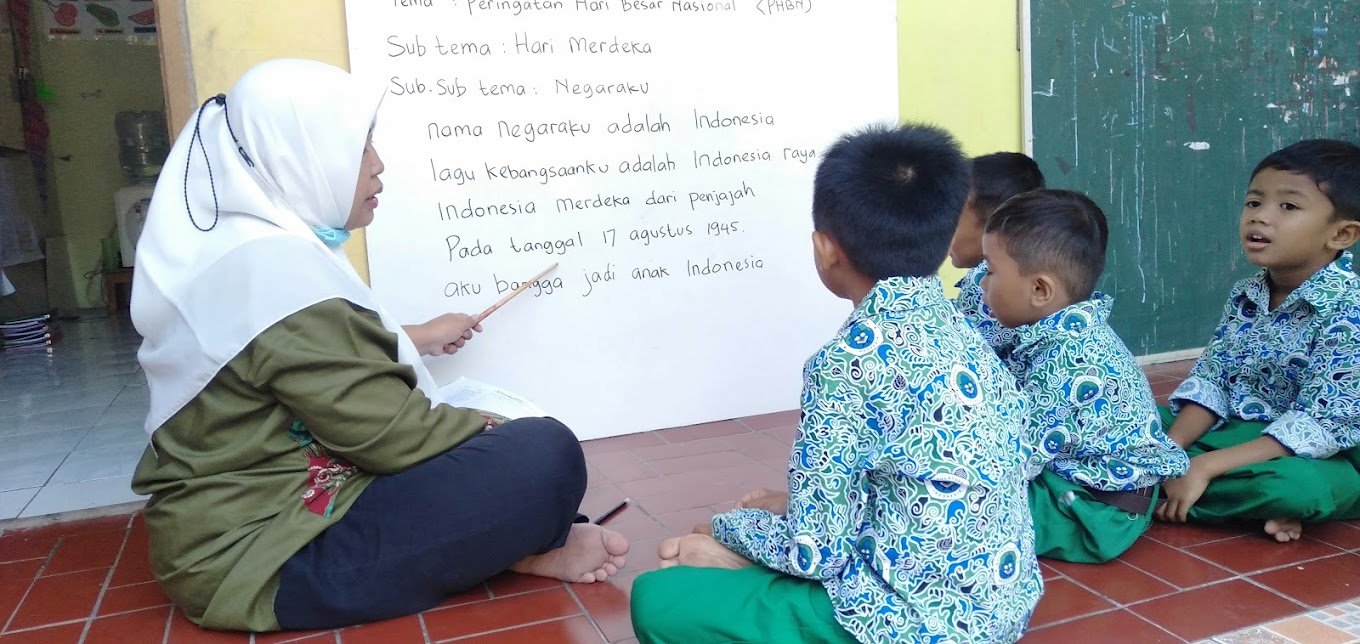 Tema : Peringatan Hari Besar Nasional (PHBN)
Sub tema : Hari Merdeka
Sub. Sub tema : Negaraku
nama negaraku adalah Indonesia
lagu kebangsaanku adalah Indonesia raya
Indonesia merdeka dari penjajah
Pada tanggal 17 agustus 1945.
aku bangga jadi anak Indonesia